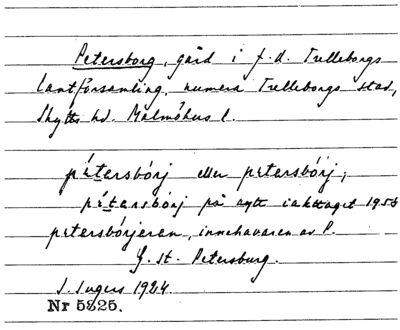 Petersborg, gård i f.d. Trelleborgs
lantförsamling, numera Trelleborgs stad,
Skytts hd. Malmöhus l.
pétersbórj eller petersbórj;
pétersbórj på nytt iakttaget 1955
petersbórjeren, innehavaren av P.
Jf. St. Petersburg.
J. Ingers 1924.
Nr 5325.